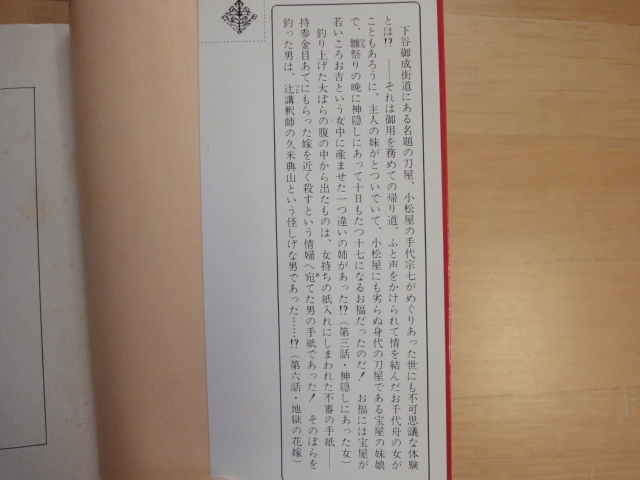 下谷御成街道にある名題の刀屋、小松屋の手代宗七がめぐりあった世にも不可思議な体験
とは!? ――それは御用を務めての帰り道、ふと声をかけられて情を結んだお千代舟の女が
こともあろうに、主人の妹がとついでいて、小松屋にも劣らぬ身代の刀屋である宝屋の妹娘
で、雛祭りの晩に神隠しにあって十日もたつ十七になるお福だったのだ! お福には宝屋が
若いころお吉という女中に産ませた一つ違いの姉があった!?(第三話・神隠しにあった女)
釣り上げた大ぼらの腹の中から出たものは、女持ちの紙入れにしまわれた不審の手紙――
持参金目あてにもらった嫁を近く殺すという情婦へ宛てた男の手紙であった! そのぼらを
釣った男は、辻講釈師の久米典山という怪しげな男であった……!?(第六話・地獄の花嫁)